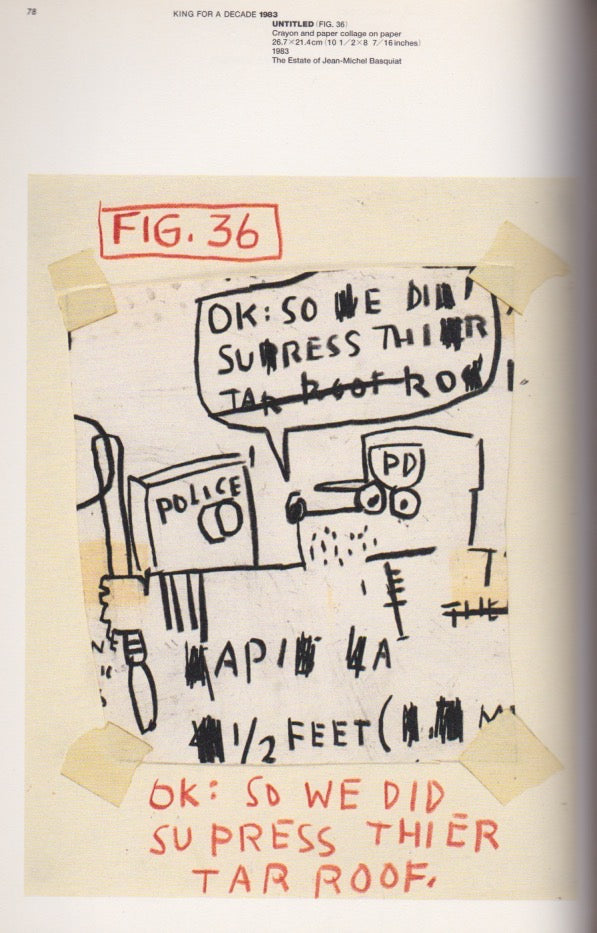 78
KING FOR A DECADE 1983
UNTITLED (FIG. 36)
Crayon and paper collage on paper
26.7×21.4cm (10 1/2×8 7/16 inches)
1983
The Estate of Jean-Michel Basquiat
FIG. 36
OK: SO WE DID
SUPRESS THIER
TAR ROOF
PD
POLICE
THE
1/2 FEET (
OK: SO WE DID
SU PRESS THIER
TAR ROOF.